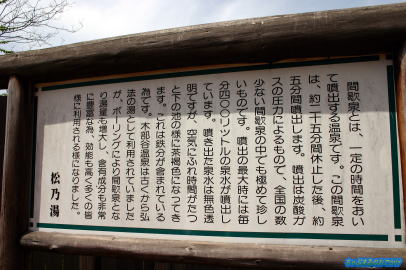 間歇泉とは、一定の時間をおい
て噴出する温泉です。この間歇泉
は、約二十五分間休止した後、約
五分間噴出します。噴出は炭酸ガ
スの圧力によるもので、全国の数
少ない間歇泉の中でも極めて珍し
いものです。噴出の最大時には毎
分四〇〇リットルの泉水が噴出し
ています。噴き出た泉水は無色透
明ですが、空気にふれ時間がたつ
と下の池の様に茶褐色になってき
ます。これは鉄分が含まれている
為です。木部谷温泉は古くから弘
法の湯として利用されていました
が、ボーリングにより間歇泉とな
り湯量も増大し、含有成分も非常
に豊富な為、効能も高く多くの皆
様に利用される様になりました。
松乃湯